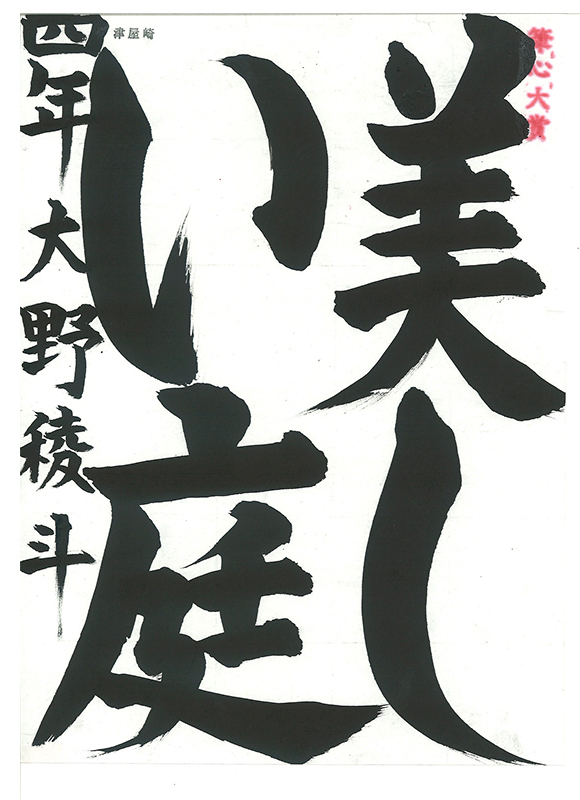 筆心大賞
美し
い庭
津屋崎
四年大野稜斗